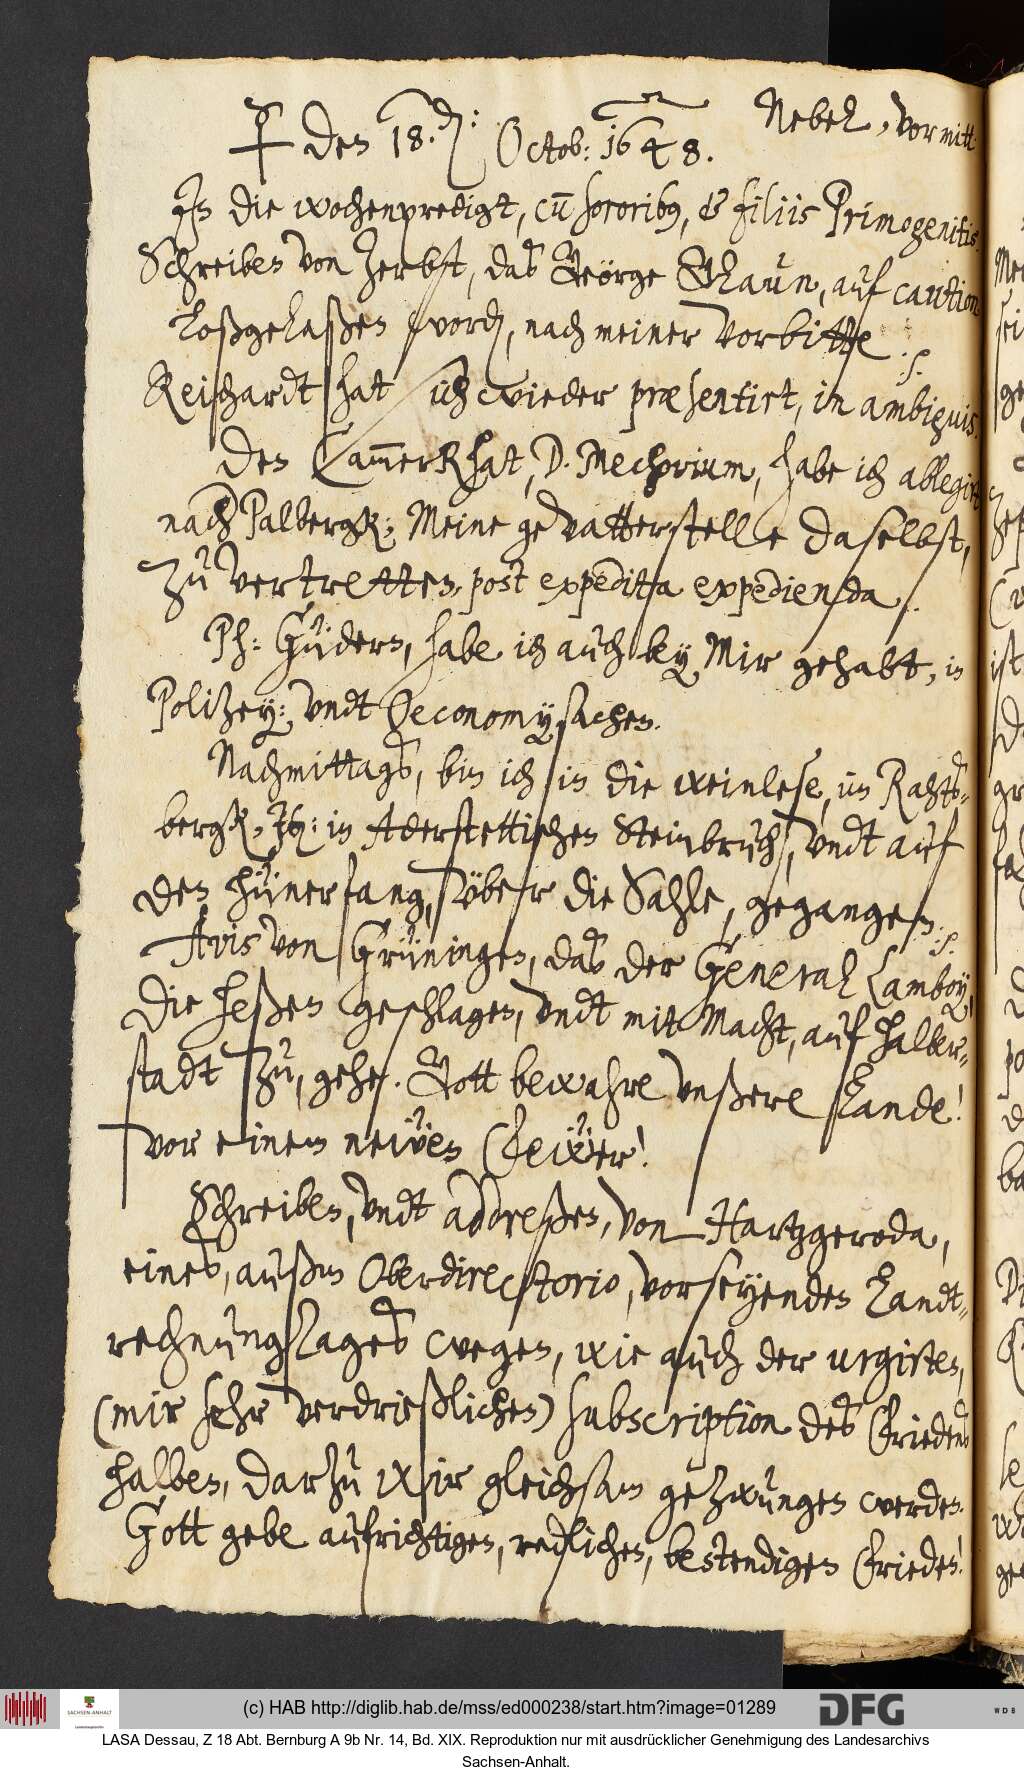 ☿ den 18. ten: Octob: 1648. Nebel, vormitt
In die wochenpredigt, cũ sororibg, & filiis Primogenitis.
Schreiben von Zerbst, das Geörge Thaun, auf caution
loßgelaßen word, nach meiner Vorbitte .s.
Reichardt hat sich wieder præsentirt, in ambiguis.
Den CammerRhat, D. Mechovium, habe ich ablegirt
nach Palbergk: Meine gevatterstelle daselbst,
zu vertretten, post expedita expedienda.
Ph: Güdern, habe ich auch bey Mir gehabt, in
Polizey: undt Oeconomysachen.
Nachmittags, bin ich in die weinlese, im Rahts=
bergk, It: in Aderstettischen Steinbruch, undt auf
den hünerfang, über die Sahle, gegangen.
Avis von Grüningen, das der General Lamboy .s.
die heßen geschlagen, undt mit Macht, auf Halber=
stadt zu, gehe. Gott bewahre unßere Lande!
vor einem neüen Feüer!
Schreiben, undt addreßen, von Hartzgeroda,
eines, außm Oberdirectorio, vorseyenden Landt=
rechnungstages wegen, wie auch der urgirten,
(mir sehr verdrießlichen) subscription des Friedens
halben, darzu wir gleichsam gezwungen werden.
Gott gebe aufrichtigen, redlichen, bestendigen Frieden!
(c) HAB http://diglib.hab.de/mss/ed000238/start.htm?image=01289
SACHSEN-ANHALT
DFG
WDB
LASA Dessau, Z 18 Abt. Bernburg A 9b Nr. 14, Bd. XIX. Reproduktion nur mit ausdrücklicher Genehmigung des Landesarchivs
Sachsen-Anhalt.